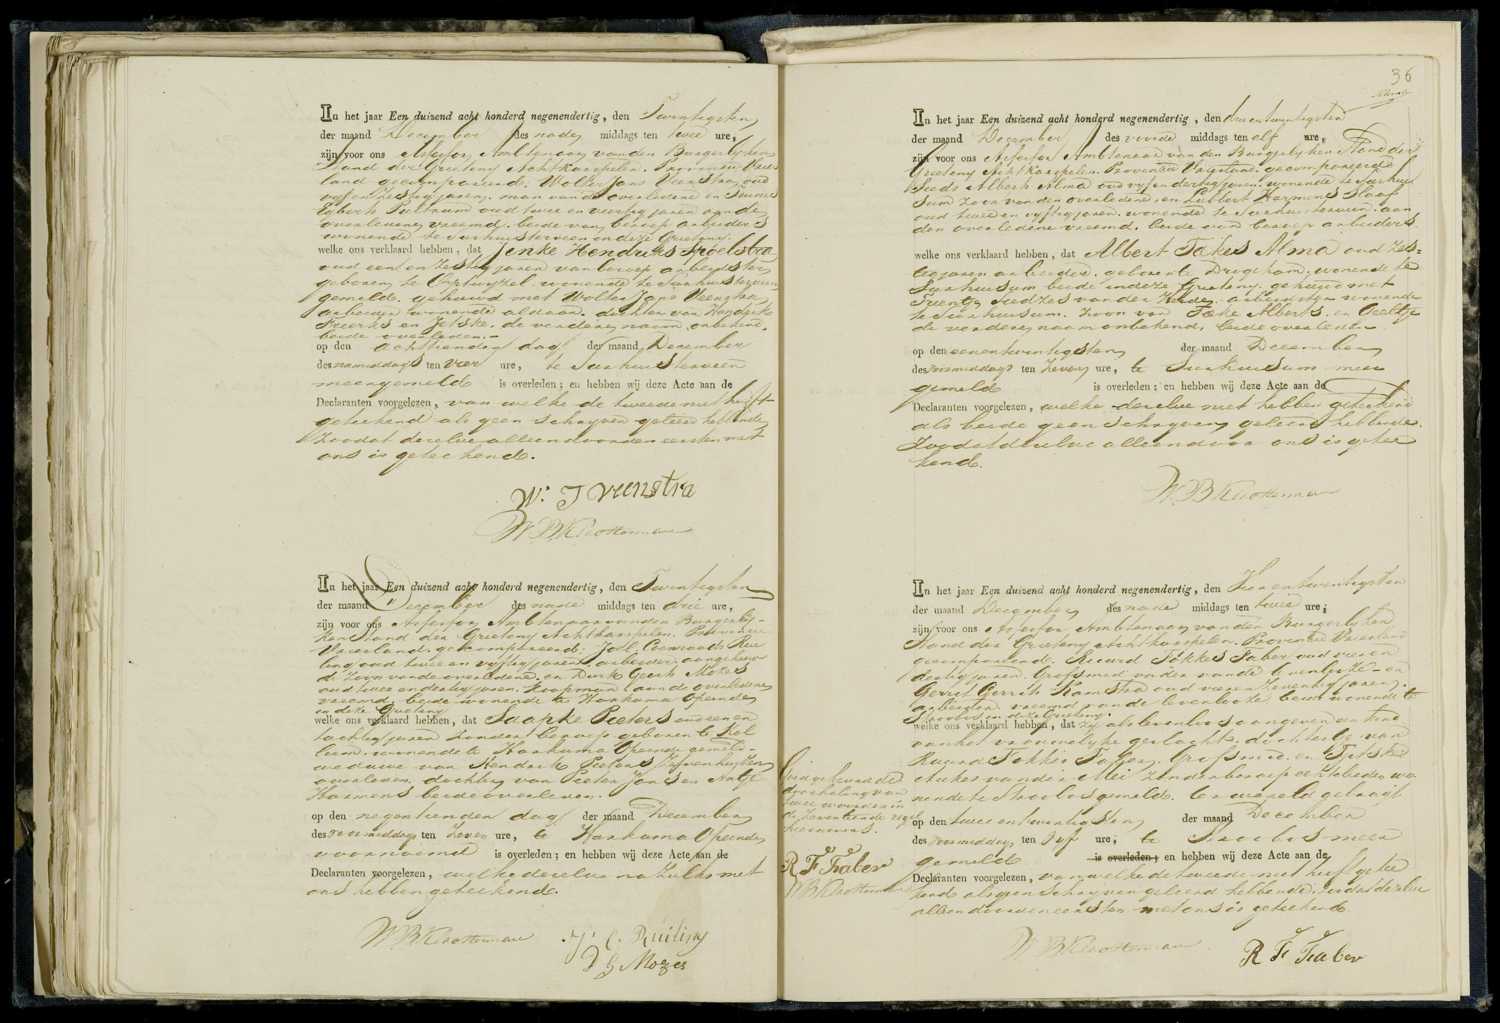 In het jaar Een duizend acht honderd negenendertig, den Twintigsten
der maand December des nade middags ten twee ure,
zijn voor ons Assessor Ambtenaar van den Burgerlijken
Stand der Grieteny Achtkarspelen Provincie Vries
land gecompareerd. Wolter Jans Veenstra, oud
jaren, man van de overledene en
Egberts oud twee en veertig jaren aan de
overledene vreemd, beide van beroep arbeiders
wonende te Surhuisterveen in deze Grieteny
welke ons verklaard hebben, dat Jenke Hendriks Spoelstra
oud een en zestig jaren van beroep arbeidster
geboren te wonende te Surhuisterveen
gemeld. gehuwd met Wolter Jans Veenstra,
arbeider wonende aldaar. dochter van Hendrik
en Jetske. de verdere naam onbekend.
beide overleden.
op den achttienden dag der maand December
des namiddags ten vier ure, te Surhuisterveen
meergemeld is overleden; en hebben wij deze Acte aan de
Declaranten voorgelezen, van welke de tweede niet heeft
geteekend als geen schrijven geleerd hebbende,
Zoodat dezelve alleen door den eersten met
ons is geteekend.
W. J Veenstra
W B Klootterman
In het jaar Een duizend acht honderd negenendertig, den Twintigsten
der maand December des nade middags ten drie ure,
zijn voor ons Assessor Ambtenaar van den Burgerlij-
ken Stand der Grieteny Achtkarspelen. Provincie
Vriesland. gecompareerd. Coenraads
oud twee en vyftig jaren arbeider aangehuw
d zoon van de overledene. en Durk Geerts Mozes
oud twee en dertig jaren. Koopman aan de overledene
vreemd, beide wonende te Harkema Opeinde
in deze Grieteny
welke ons verklaard hebben, dat Taapke Pieters oud een en
tachtig jaren zonder beroep geboren te Kol
lum. wonende te Harkema Opeinde gemeld.
weduwe van Hendrik Pieters
overleden. dochter van Pieter Jans en Aaltje
Harmens beide overleden.
op den negentienden dag der maand December
des voormiddags ten zeven ure, te Harkema Opeinde
voornoemd is overleden; en hebben wij deze Acte aan de
Declaranten voorgelezen, welke dezelve nazulks met
ons hebben geteekend.
W B Klootterman
J. C. Ruiling
D G Mozes
36
In het jaar Een duizend acht honderd negenendertig, den drieentwintigsten
der maand December des voorde middags ten elf ure,
zijn voor ons Assessor Ambtenaar van den Burgerlyken Stand der
Grieteny Achtkarspelen. Provincie Vriesland. gecompareerd
Sieds Alberts Alma oud vyf en dertig jaren. wonende te Surhui
sum zoon van den overledene, en Lubbert Harmens
oud twee en vyftig jaren. wonende te Surhuisterveen. aan
den overledene vreemd. beide van beroep arbeiders.
welke ons verklaard hebben, dat Albert Tækes Alma oud zes-
tig jaren arbeider. geboren te Drogeham. wonende te
Surhuisum beide in deze Grieteny. gehuwd met
Trientje Siedzes van der Heide. arbeidster wonende
te Surhuisum. zoon van Tæke Alberts. en
de verdere naam onbekend, beide overleden.
op den eenentwintigsten der maand December
des voormiddags ten zeven ure, te Surhuisum meer
gemeld is overleden; en hebben wij deze Acte aan de
Declaranten voorgelezen, welke dezelve niet hebben geteekend
als beide geen schryven geleerd hebbende.
Zoodat dezelve alleen door ons is getee
kend.
W B Klootterman
In het jaar Een duizend acht honderd negenendertig, den Vierentwintigsten
der maand December des nade middags ten twee ure;
zijn voor ons Assessor Ambtenaar van den Burgerlyken
Stand der Grieteny Achtkarspelen. Provincie Vriesland
gecompareerd. Ruurd Fokkes Faber oud vier en
dertig jaren. Grofsmid. vader van de levenlooze. en
Gerrit Gerrits Hamstra oud vier en zeventig jaren.
arbeider vreemd van de levenlooze beide wonende te
Stroobos in deze Grieteny.
welke ons verklaard hebben, dat zy als levenloos aangeven een kind
van het vrouwelyke geslacht. dochtertje van
Ruurd Fokkes Faber, Grofsmid. en Tjitske
Aukes van der Mei zonder beroep echtelieden wo
nende te Stroobos gemeld. ter wereld gebragt
op den twee en twintigsten der maand December
des voormiddags ten vyf ure; te Stroobos meer
gemeld is overleden; en hebben wij deze Acte aan de
Declaranten voorgelezen, van welke de tweede niet heeft getee
kend als geen schryven geleerd hebbende. zoodat dezelve
alleen door den eersten met ons is geteekend.
W B Klootterman
R F Faber
Goedgekeurd de
doorhaling van
twee woorden in
de zeventiende regel
hiernevens.
R F Faber
W B Klootterman